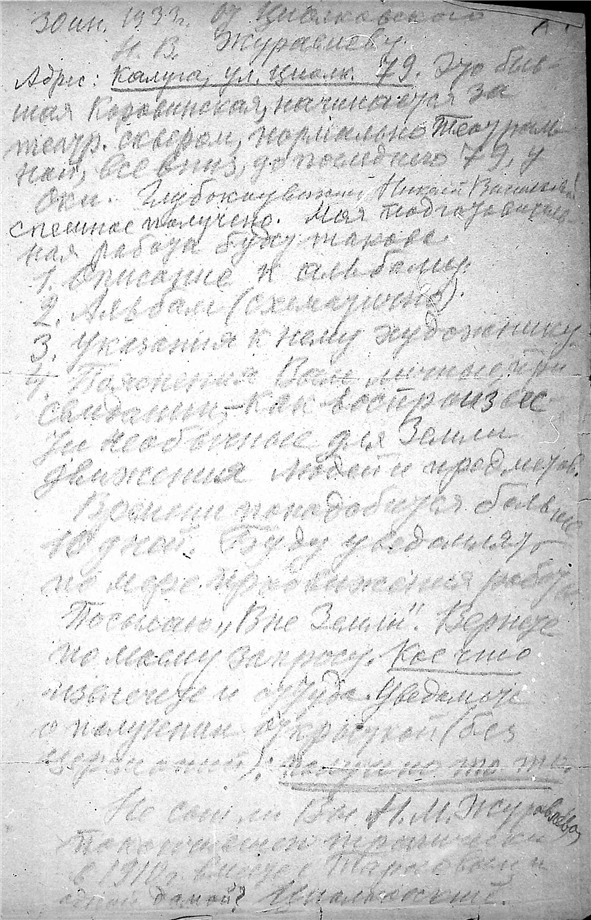 30 ин. 1933г. от Циолковского
Н. В. Журавлеву.
Адрес: Калуга, ул. Циолк. 79. Это быв-
шая Коровинская, начинается за
театр. сквером, нормально Театраль-
ной, все вниз, до последнего 79, у
Оки. Глубокоуважаемый Николай Васильевич!
Спешное получено. Моя подготовитель-
ная работа будет такова
1. Описание к альбому.
2. Альбом (схематично).
3. Указания к нему художнику.
4. Пояснения Вам личные, при
свидании, – как воспроизвес
ти необычные для Земли
движения людей и предметов.
Времени понадобится больше
10 дней. Буду уведомлять
по мере продвижения работы.
Посылаю „Вне Земли". Верните
по моему запросу. Кое что
извлечете и оттуда. Уведомьте
о получении открыткой (без
церемоний): получено то-то.
Не сын ли Вы Н. М. Журавлева,
покончившего трагически
в 1910г. вместе с Тарасовым и
одной дамой? Циолковский.